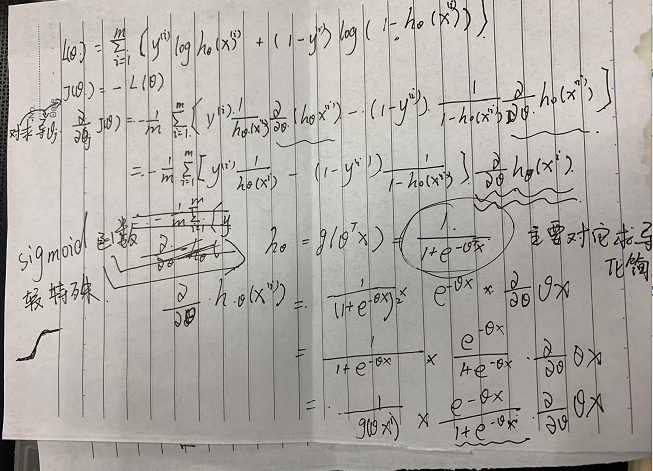 L(θ) = Σ_{i=1}^{m} { y^{(i)} log h_θ(x)^{(i)} + (1 - y^{(i)}) log (1 - h_θ(x^{(i)})) }
J(θ) = - L(θ)
∂/∂θ_j J(θ) = - 1/m Σ_{i=1}^{m} { y^{(i)} · 1/h_θ(x^{(i)}) ∂/∂θ (h_θ x^{(i)}) - (1 - y^{(i)}) · 1/(1 - h_θ(x^{(i)})) ∂/∂θ · h_θ(x^{(i)}) }
= - 1/m Σ_{i=1}^{m} [ y^{(i)} 1/h_θ(x^{(i)}) - (1 - y^{(i)}) 1/(1 - h_θ(x^{(i)})) ] · ∂/∂θ h_θ(x^{(i)})
sigmoid
较特殊
h_θ = g(θ^T x) = 1/(1 + e^{-θ^T x})
主要对它求导
化简
∂/∂θ · h_θ(x^{(i)}) = 1/(1 + e^{-θx})^2 × e^{-θx} × ∂/∂θ θx
= 1/(1 + e^{-θx}) × e^{-θx}/(1 + e^{-θx}) · ∂/∂θ θx
= 1/g(θx^i) × e^{-θx}/(1 + e^{-θx^i}) · ∂/∂θ θx